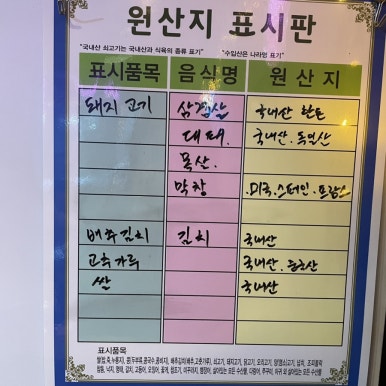 원산지 표시판
"국내산 쇠고기는 국내산과 식육의 종류 표기" "수입산은 나라명 표기"
표시품목 음식명 원산지
돼지고기 삼겹살 국내산 한돈
대패. 국내산. 독일산
목살.
막창 .미국.스페인.프랑스
배추김치 김치 국내산
고추가루 국내산. 중국산
쌀 국내산
표시품목